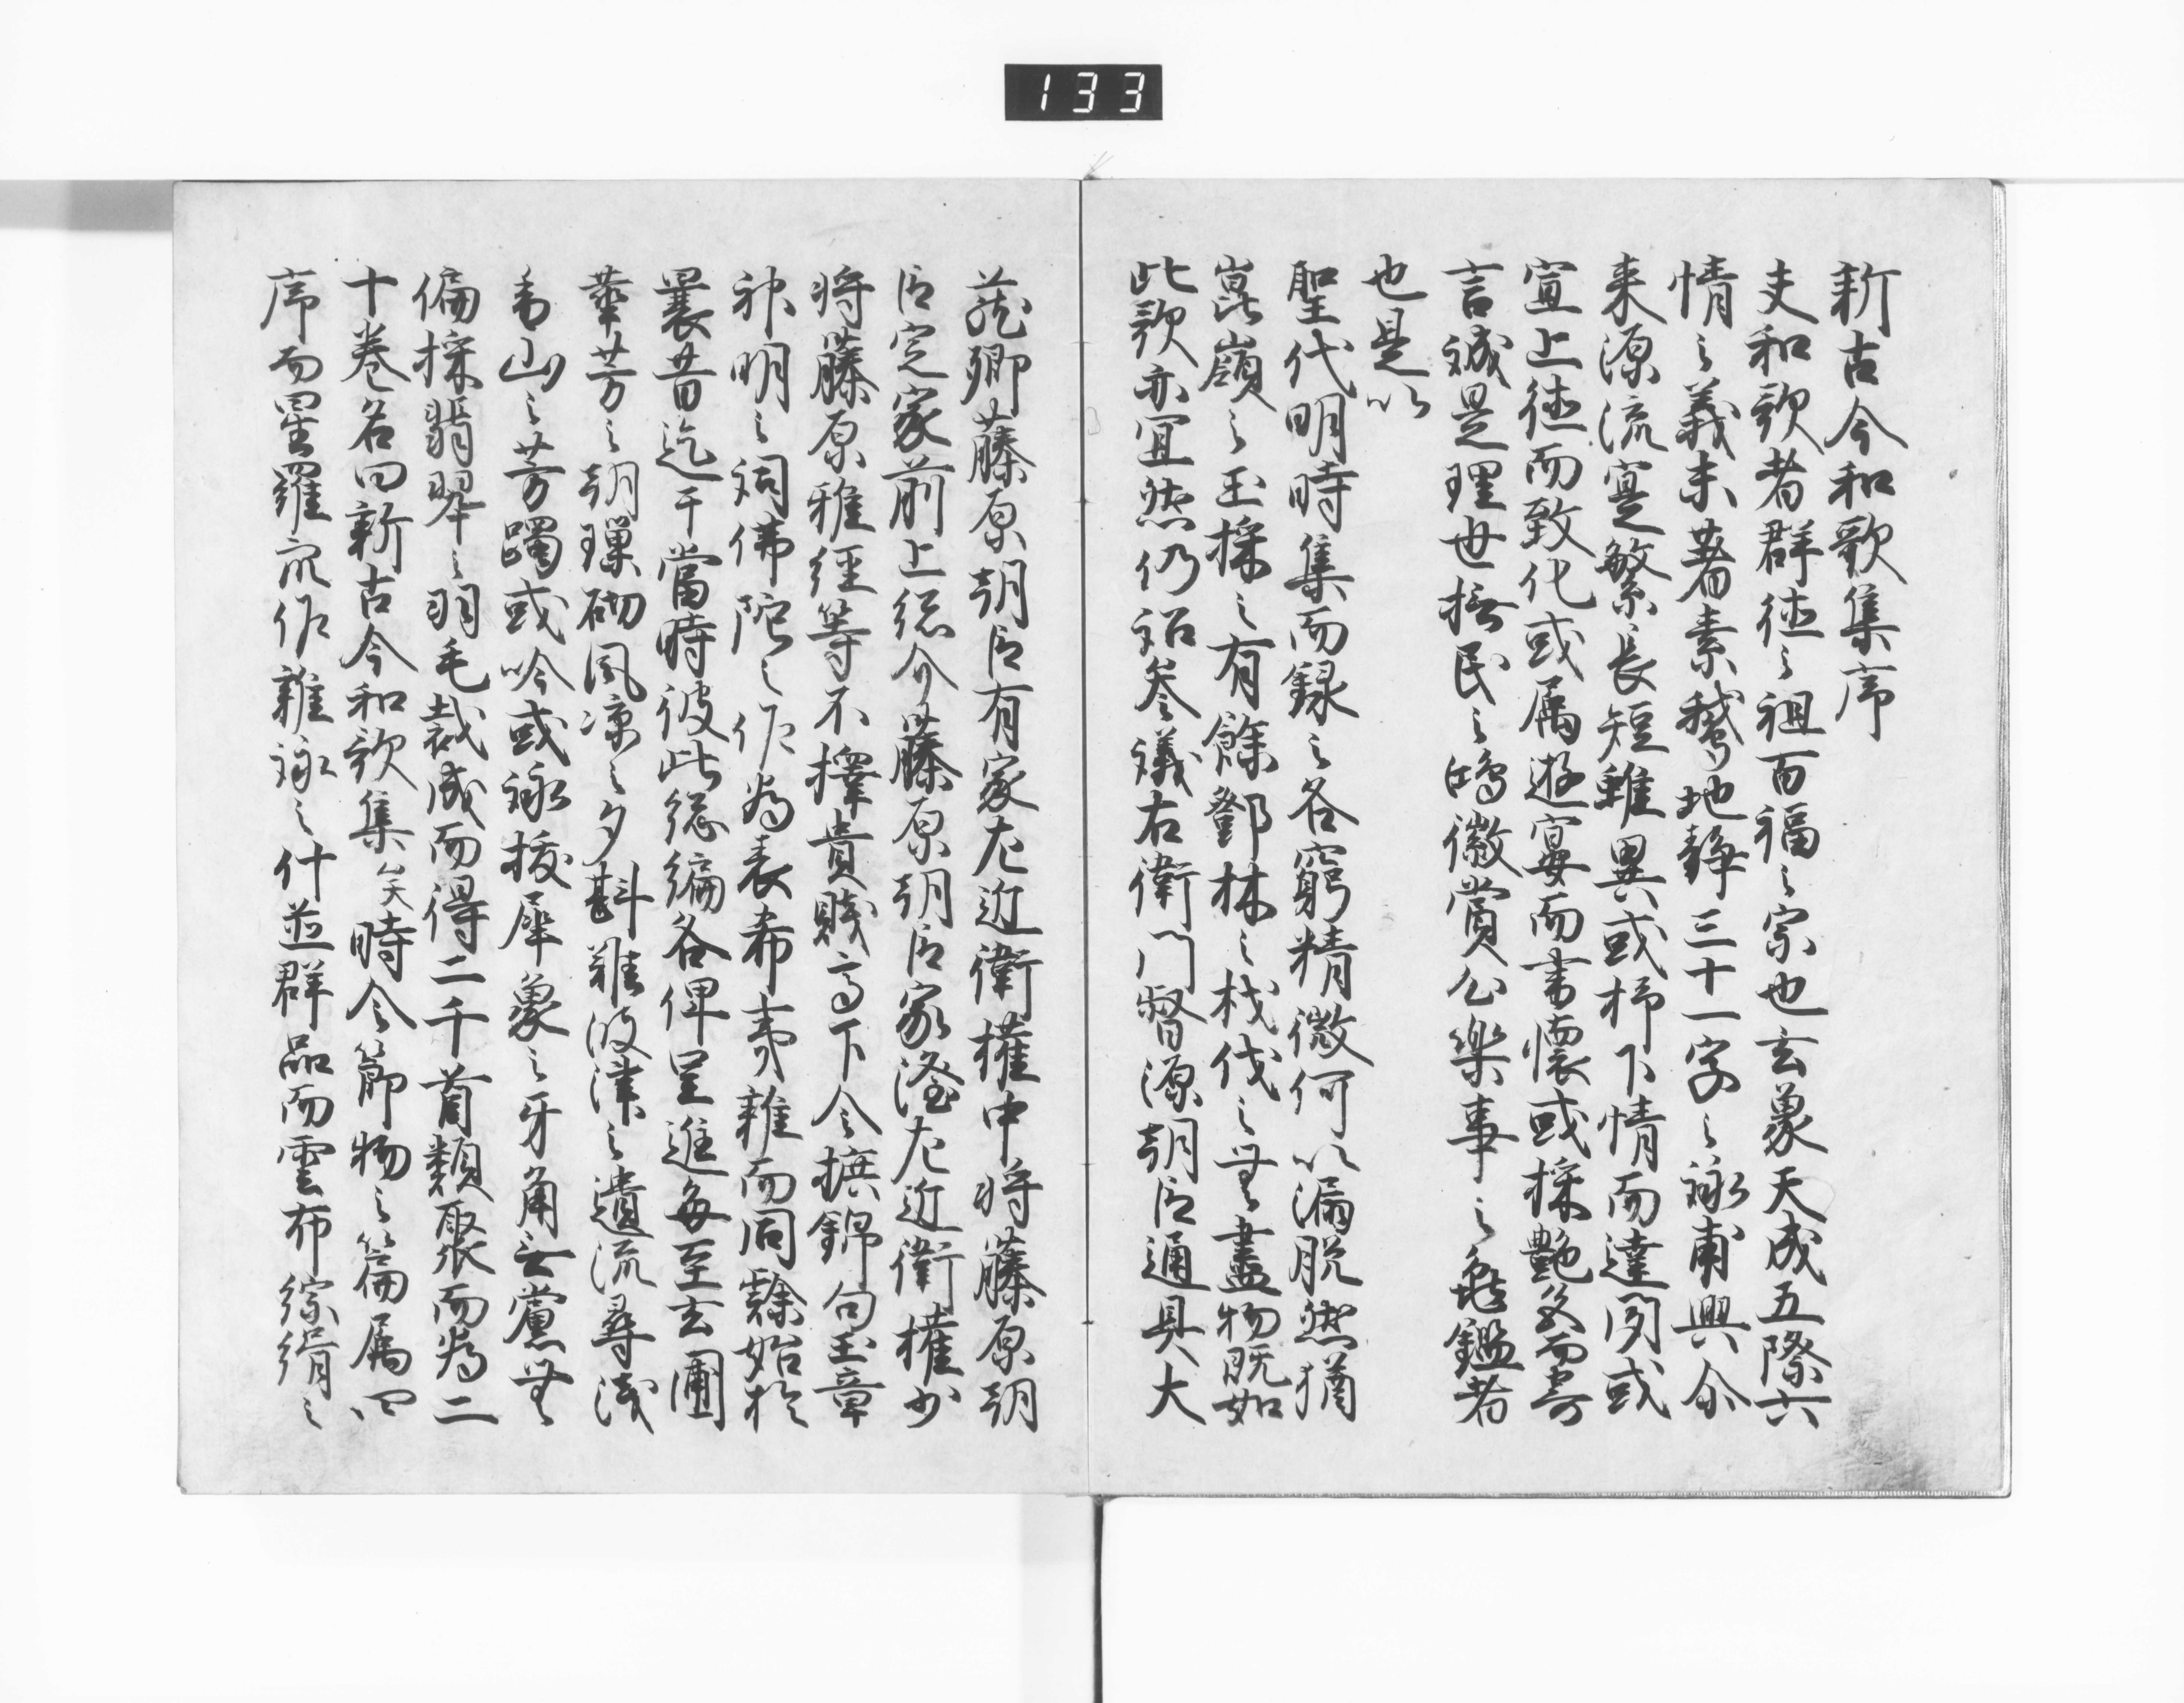 133
新古今和歌集序
夫和歌者群徳之祖百福之宗也玄象天成五際六
情之義未著素鵞地静三十一字之詠甫興尒
来源流寔繁長短雖異或抒下情而達聞或
宣上徳而致化或属遊宴而書懐或採艶色而寄
言誠是理世撫民之鴻徽賞心楽事之亀鑑者
也是以
聖代明時集而録之各窮精微何以漏脱然猶
崑嶺之玉採之有餘鄧林之材伐之無盡物既如
此歌亦宜然仍詔参議右衛門督源朝臣通具大
蔵卿藤原朝臣有家左近衛権中将藤原朝
臣定家前上総介藤原朝臣家隆左近衛権少
将藤原雅経等不擇貴賤高下令摭錦句玉章
神明之詞佛陀之作為表希夷雑而同隷始於
曩昔迄于當時彼此総編各俾呈進毎至玄圃
華芳之朝璅砌風凉之夕斟難波津之遺流尋浅
香山之芳躅或吟或詠抜犀象之牙角無黨無
偏採翡翠之羽毛裁成而得二千首類聚而為二
十巻名曰新古今和歌集矣時令節物之篇属四
序而星羅衆作雑詠之什並群品而雲布綜緝之